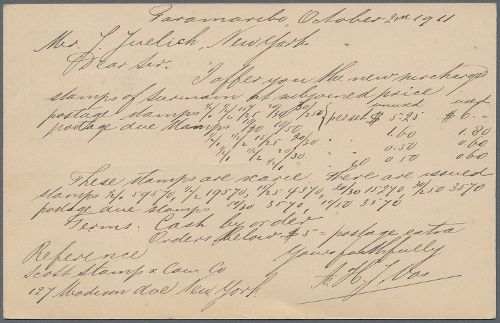 Paramaribo, October 2nd 1911
Mr. J. Juelich, New York
Dear Sir.
I offer you the new surcharged
stamps of Surinam at subjoined price
unused used
postage stamps 15/25 20/30 per set $ 5.25 $ 6.–
postage due stamps 10/30 10/50 " " 1.60 1.80
" " 0.50 0.60
" 0.50 0.60
These stamps are scarce. There are issued
stamps 19570, 19570, 15/25 4370, 20/30 15270, 3570
postage due stamps 10/30 3570, 10/50 3570
Terms. Cash by order
Orders below $ 5 = postage extra
Yours faithfully
Reference
Scott Stamp & Coin Co
127 Madison Ave New York
A. H. J. Vos